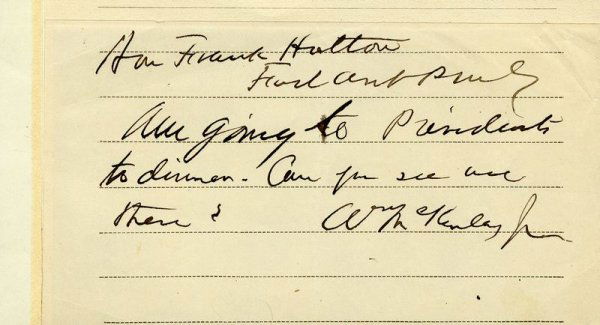 Hon Frank Hatton
First Asst P M G
Am going to Presidents
to dinner. Can you see me
there? Wm McKinley Jr.